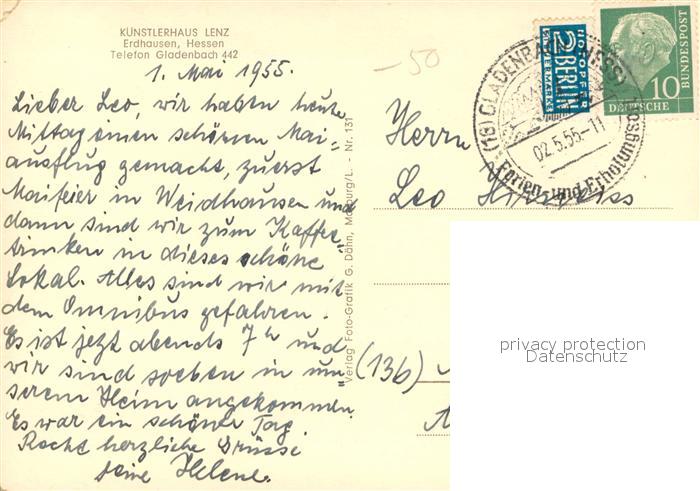 KÜNSTLERHAUS LENZ
Erdhausen, Hessen
Telefon Gladenbach 442
1. Mai 1955.
Lieber Leo, wir haben heute
Mittag einen schönen Mai-
ausflug gemacht, zuerst
Maifeier in Weidhausen und
dann sind wir zum Kaffee-
trinken in dieses schöne
Lokal. Alles sind wir mit
dem Omnibus gefahren.
Es ist jetzt abends 7 h und
wir sind soeben in un-
serem Heim angekommen.
Es war ein schöner Tag.
Recht herzliche Grüsse
Helene.
Verlag Foto-Grafik G. Döhn, Marburg/L. - Nr. 131
-50
NOTOPFER
2 BERLIN
STEUERMARKE
DEUTSCHE
BUNDESPOST
10
(16) GLADENBACH (HESS)
02.5.55.-11
Ferien- und Erholungs
Herrn
Leo
(136)
privacy protection
Datenschutz